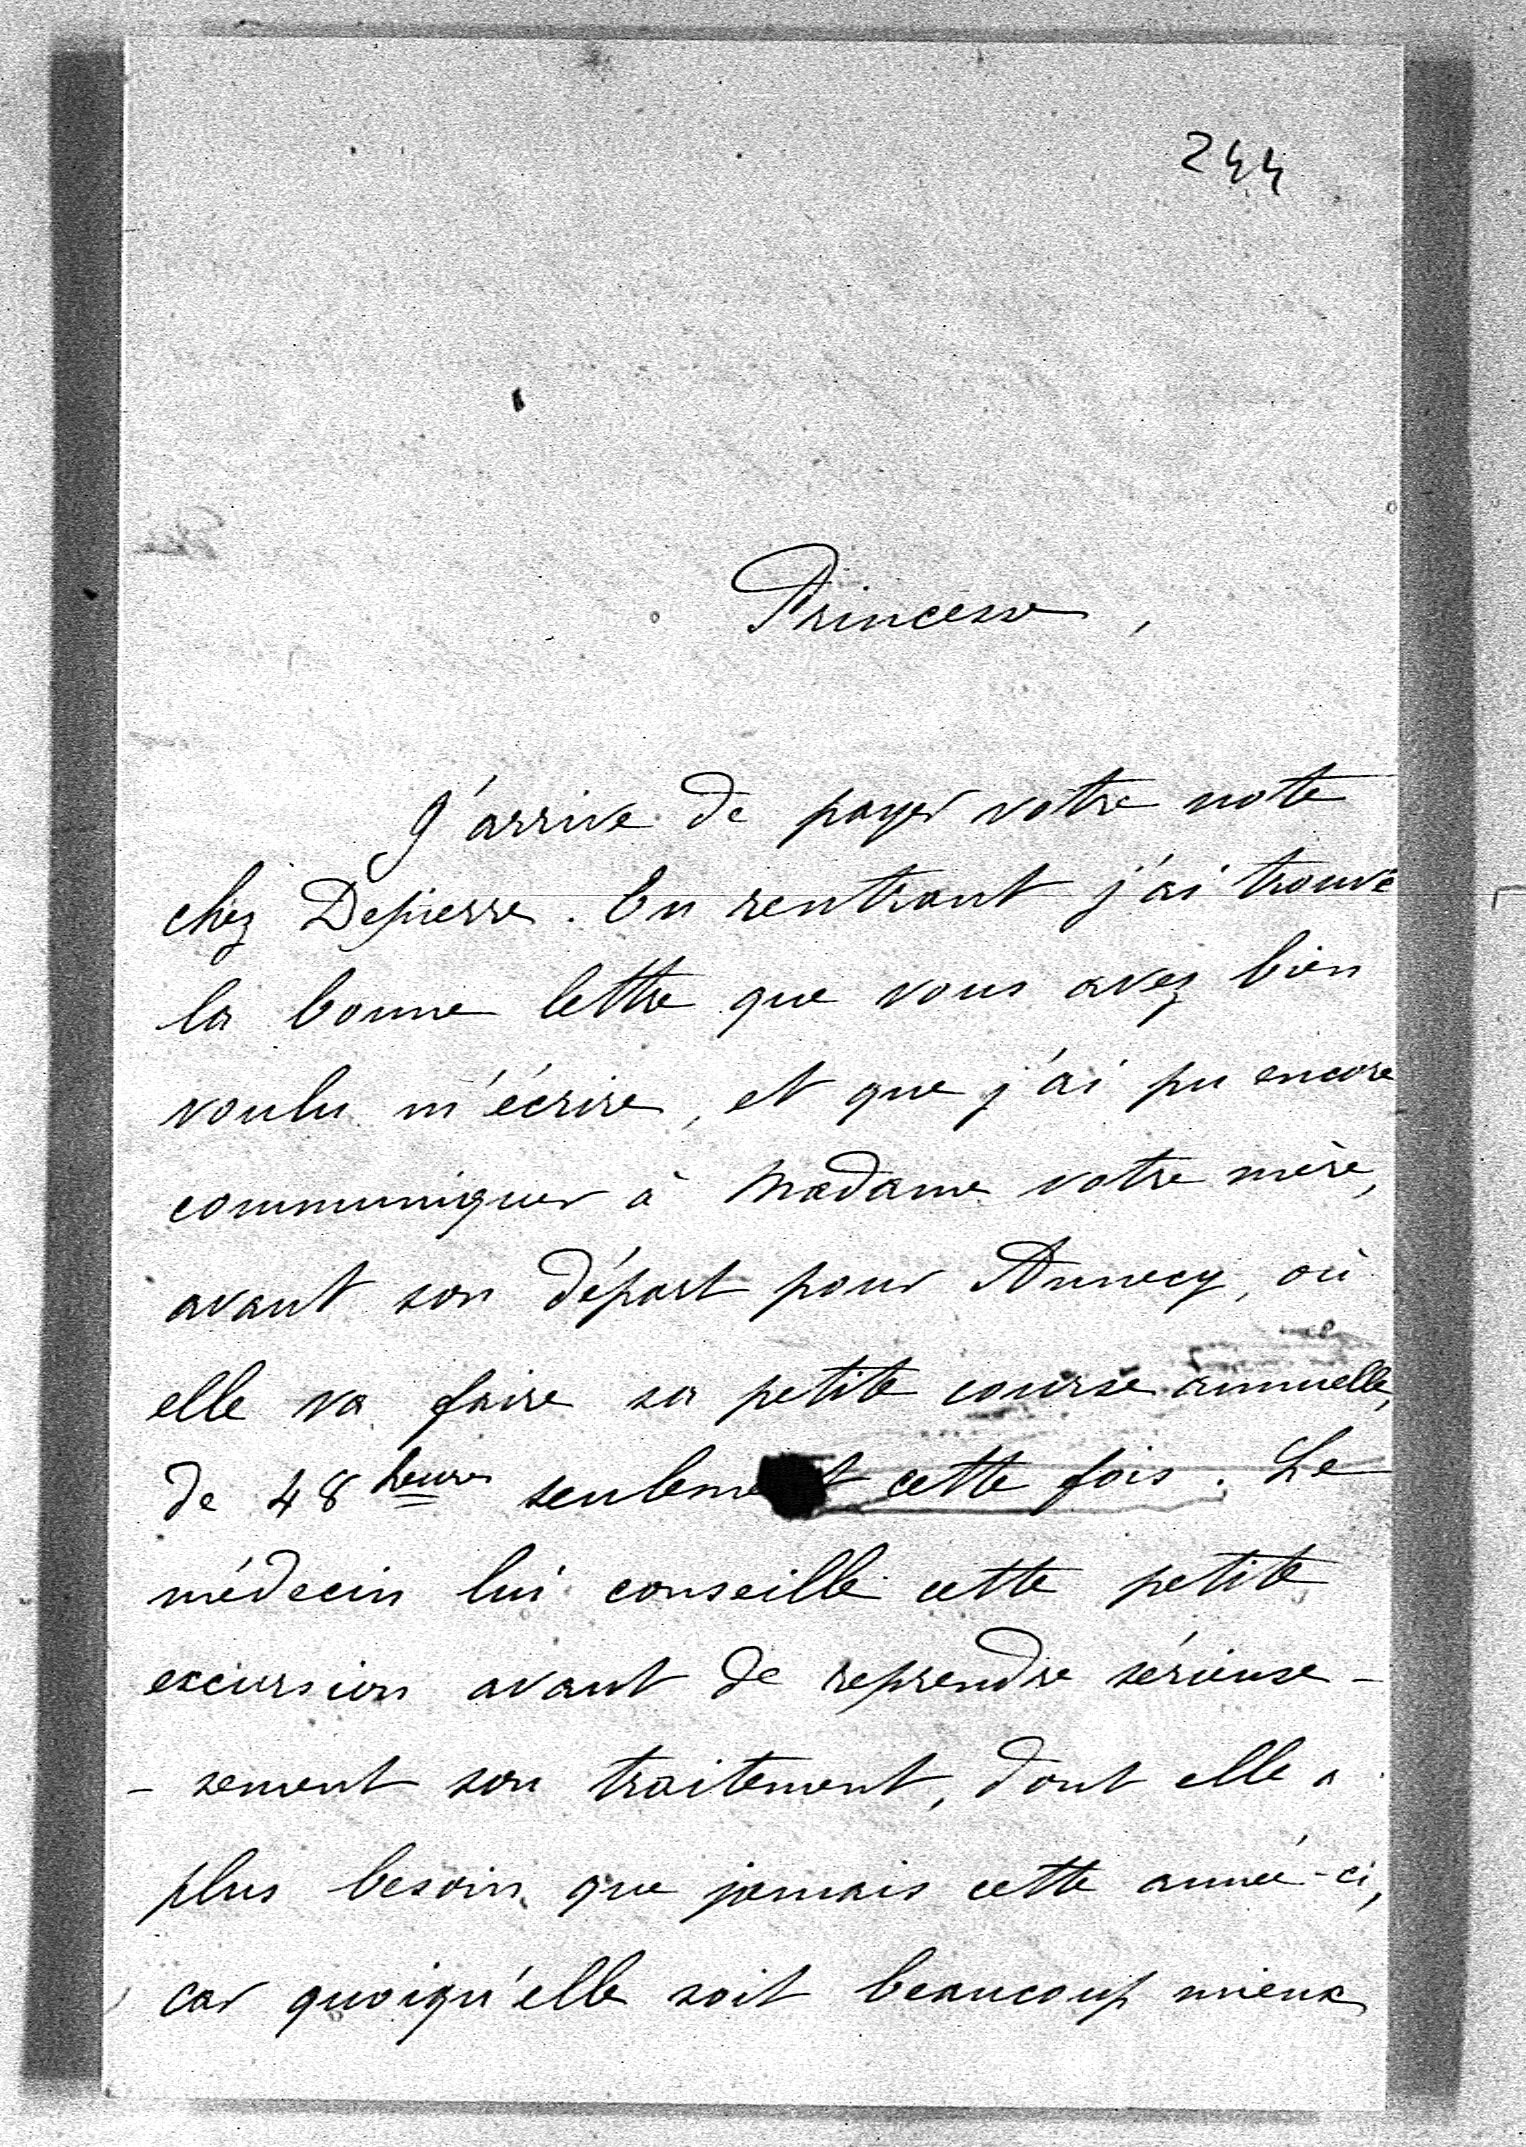 244
Princesse,
J'arrive de payer votre note
chez Depierre. En rentrant j'ai trouvé
la bonne lettre que vous avez bien
voulu m'écrire, et que j'ai pu encore
communiquer à Madame votre mère,
avant son départ pour Annecy, où
elle va faire sa petite course annuelle,
de 48 heures seulement cette fois. Le
médecin lui conseille cette petite
excursion avant de reprendre sérieuse-
-sement son traitement, dont elle a
plus besoin que jamais cette année-ci,
car quoiqu'elle soit beaucoup mieux